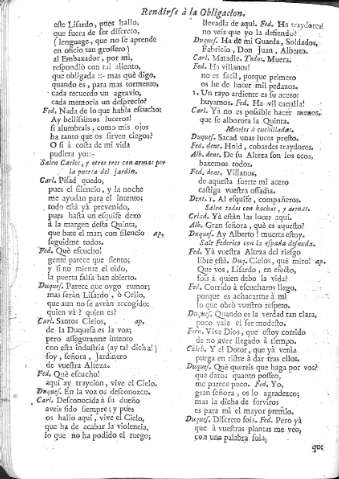 Rendirse à la Obligacion.
este Lisardo, pues hallo,
que fuera de ser discreto,
(lenguage, que no se aprende
en oficio tan grossero)
al Embaxador, por mi,
respondiò con tal aliento,
que obligada :: mas què digo,
quando es, para mas tormento,
cada recuerdo un agravio,
cada memoria un desprecio?
Fed. Nada de lo que habla escucho:
Ay bellissimos luceros!
si alumbrais, como mis ojos
ha tanto que os sirven ciegos?
O si à costa de mi vida
pudiera yo::-
Salen Carlos, y otros tres con armas por
la puerta del jardin.
Carl. Pisad quedo,
pues el silencio, y la noche
me ayudan para el intento:
todo està yà prevenido,
pues hasta un esquife dexo
à la margen desta Quinta,
que bate el mar; con silencio ap.
seguidme todos.
Fed. Què escucho!
gente parece que siento;
y si no miente el oido,
la puerta falsa han abierto.
Duques. Parece que oygo rumor;
mas seràn Lisardo, ò Celio,
que aun no se avràn recogido:
quien và? quien es?
Carl. Santos Cielos, ap.
de la Duquesa es la voz;
pero assegurarme intento
con esta industria (ay tal dicha!)
soy, señora, Jardinero
de vuestra Alteza.
Fed. Què escucho!
aqui ay traycion, vive el Cielo.
Duques. En la voz os desconozco.
Carl. Desconocida à su dueño
aveis sido siempre; y pues
os hallo aqui, vive el Cielo,
que ha de acabar la violencia,
lo que no ha podido el ruego;
llevadla de aqui. Fed. Ha traydores!
no veis que yo la defiendo?
Duques. Ha de mi Guarda, Soldados,
Fabricio, Don Juan, Alberto.
Carl. Matadle. Todos. Muera.
Fed. Ha villanos!
no es facil, porque primero
os he de hacer mil pedazos.
1. Un rayo ardiente es su acero:
huyamos. Fed. Ha vil canalla!
Carl. Yà no es possible hacer menos,
que se alborota la Quinta.
Metelos à cuchilladas.
Duques. Sacad unas luces presto.
Fed. dent. Hold, cobardes traydores.
Alb. dent. De su Alteza son los ecos,
baxemos todos.
Fed. dent. Villanos,
de aquesta suerte mi acero
castiga vuestra ossadia.
Dent. 1. Al esquife, compañeros.
Salen todos con hachas, y armas.
Criad. Yà estàn las luces aqui.
Alb. Gran señora, què es aquesto?
Duques. Ay Alberto! muerta estoy.
Sale Federico con la espada desnuda.
Fed. Yà vuestra Alteza del riesgo
libre està. Duq. Cielos, què miro! ap.
Que vos, Lisardo, en efecto,
sois à quien debo la vida?
Fed. Corrido à escucharos llego,
porque es achacarme à mi
lo que obrò vuestro respeto.
Duques. Quando es la verdad tan clara,
poco vale el ser modesto.
Fern. Vive Dios, que estoy corrido
de no aver llegado à tiempo.
Chich. Y el Dotor, que yà venia
purga en ristre à dar tras ellos.
Duques. Què quereis que haga por vos?
que daros quanto posseo,
me parece poco. Fed. Yo,
gran señora, os lo agradezco;
mas la dicha de serviros
es para mi el mayor premio.
Duques. Discreto sois. Fed. Pero yà
que à vuestras plantas me veo,
con una palabra sola;
que